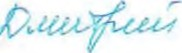 Дмитрий